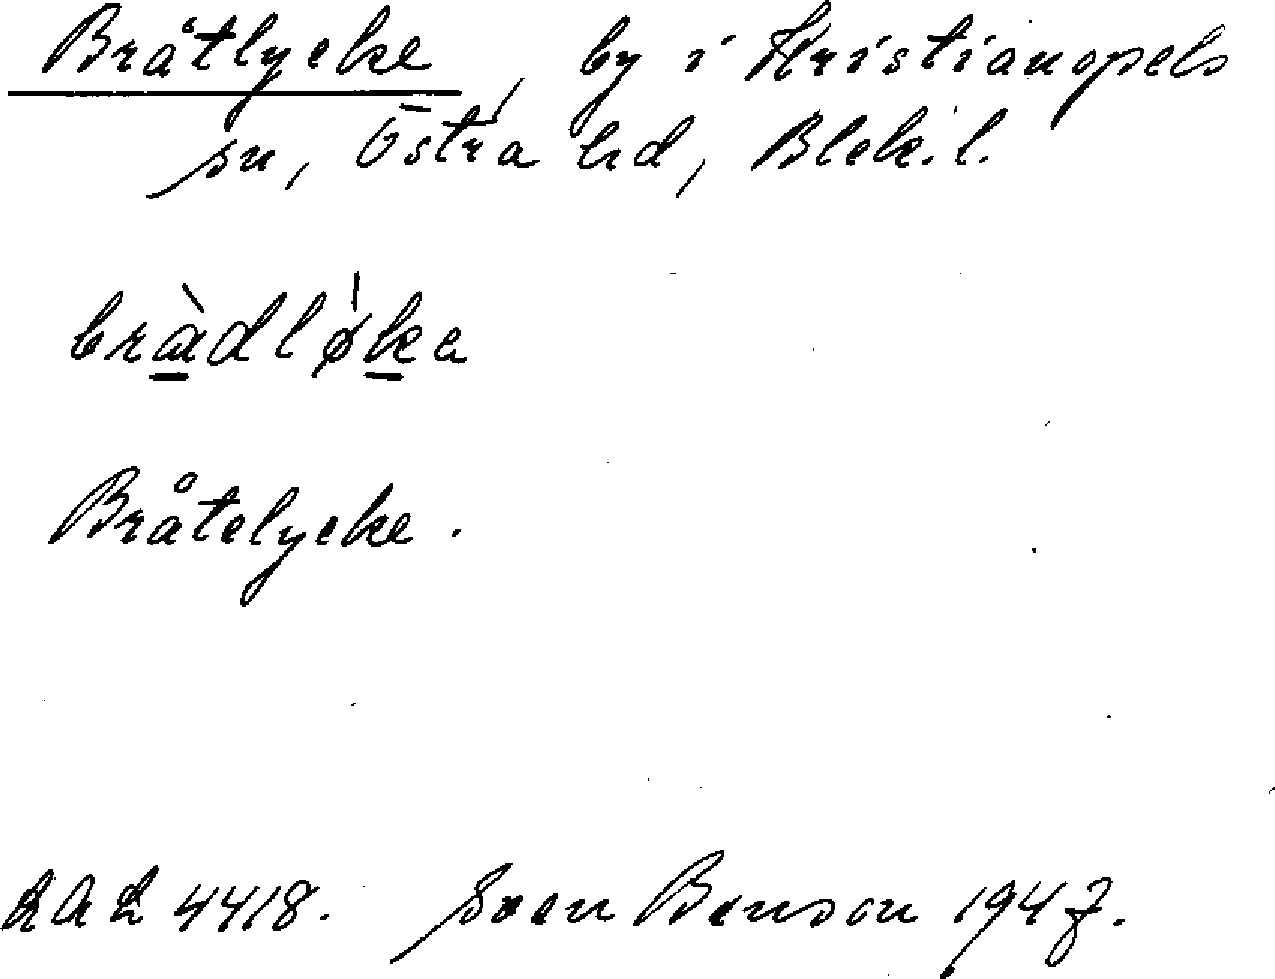 Bråtlycke, by i Kristianopels
sn, Östra hd, Blek. l.
bràdlø̀ka
Bråtelycke.
LAL 4418. Sven Benson 1947.